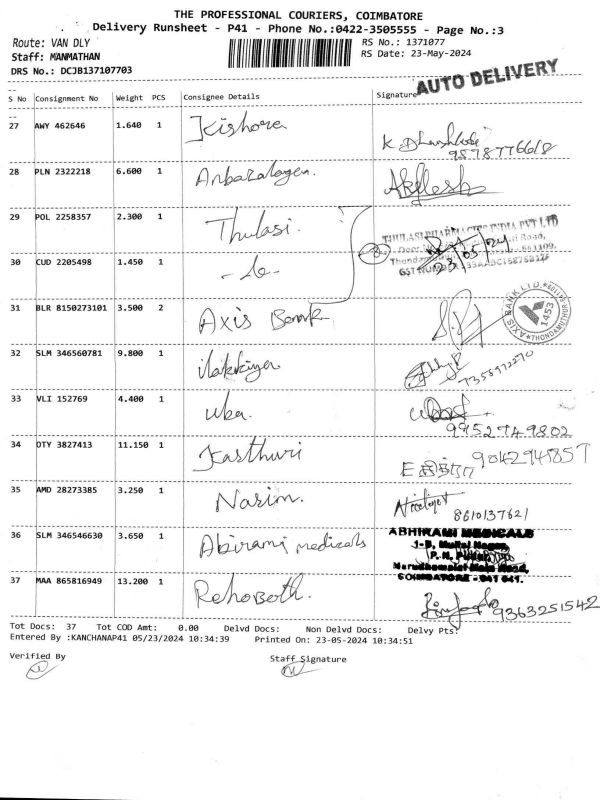 THE PROFESSIONAL COURIERS, COIMBATORE
Delivery Runsheet - P41 - Phone No.:0422-3505555 - Page No.:3
Route: VAN DLY
RS No.: 1371077
Staff: MANMATHAN
RS Date: 23-May-2024
DRS No.: DCJB137107703
AUTO DELIVERY
S No Consignment No Weight PCS Consignee Details Signature
27 AWY 462646 1.640 1 Kishore
9578776618
28 PLN 2322218 6.600 1 Anbazalagen. Akilesh
29 POL 2258357 2.300 1 Thulasi.
THULASI PHARMACIES INDIA PVT LTD
23/05/24
30 CUD 2205498 1.450 1
31 BLR 8150273101 3.500 2 Axis Bank
AXIS BANK LTD. THONDAMUTHUR
1453
32 SLM 346560781 9.800 1 ilakkiya
7358972270
33 VLI 152769 4.400 1 uba.
9952749802
34 OTY 3827413 11.150 1 Kasthuri
9042941857
35 AMD 28273385 3.250 1 Nasim.
8610137621
36 SLM 346546630 3.650 1 Abirami medicals
ABHIRAMI MEDICALS
Marudhamalai Main Road,
COIMBATORE - 641 041.
37 MAA 865816949 13.200 1 Rehoboth.
9363251542
Tot Docs: 37 Tot COD Amt: 0.00 Delvd Docs: Non Delvd Docs: Delvy Pts:
Entered By :KANCHANAP41 05/23/2024 10:34:39 Printed On: 23-05-2024 10:34:51
Verified By Staff Signature